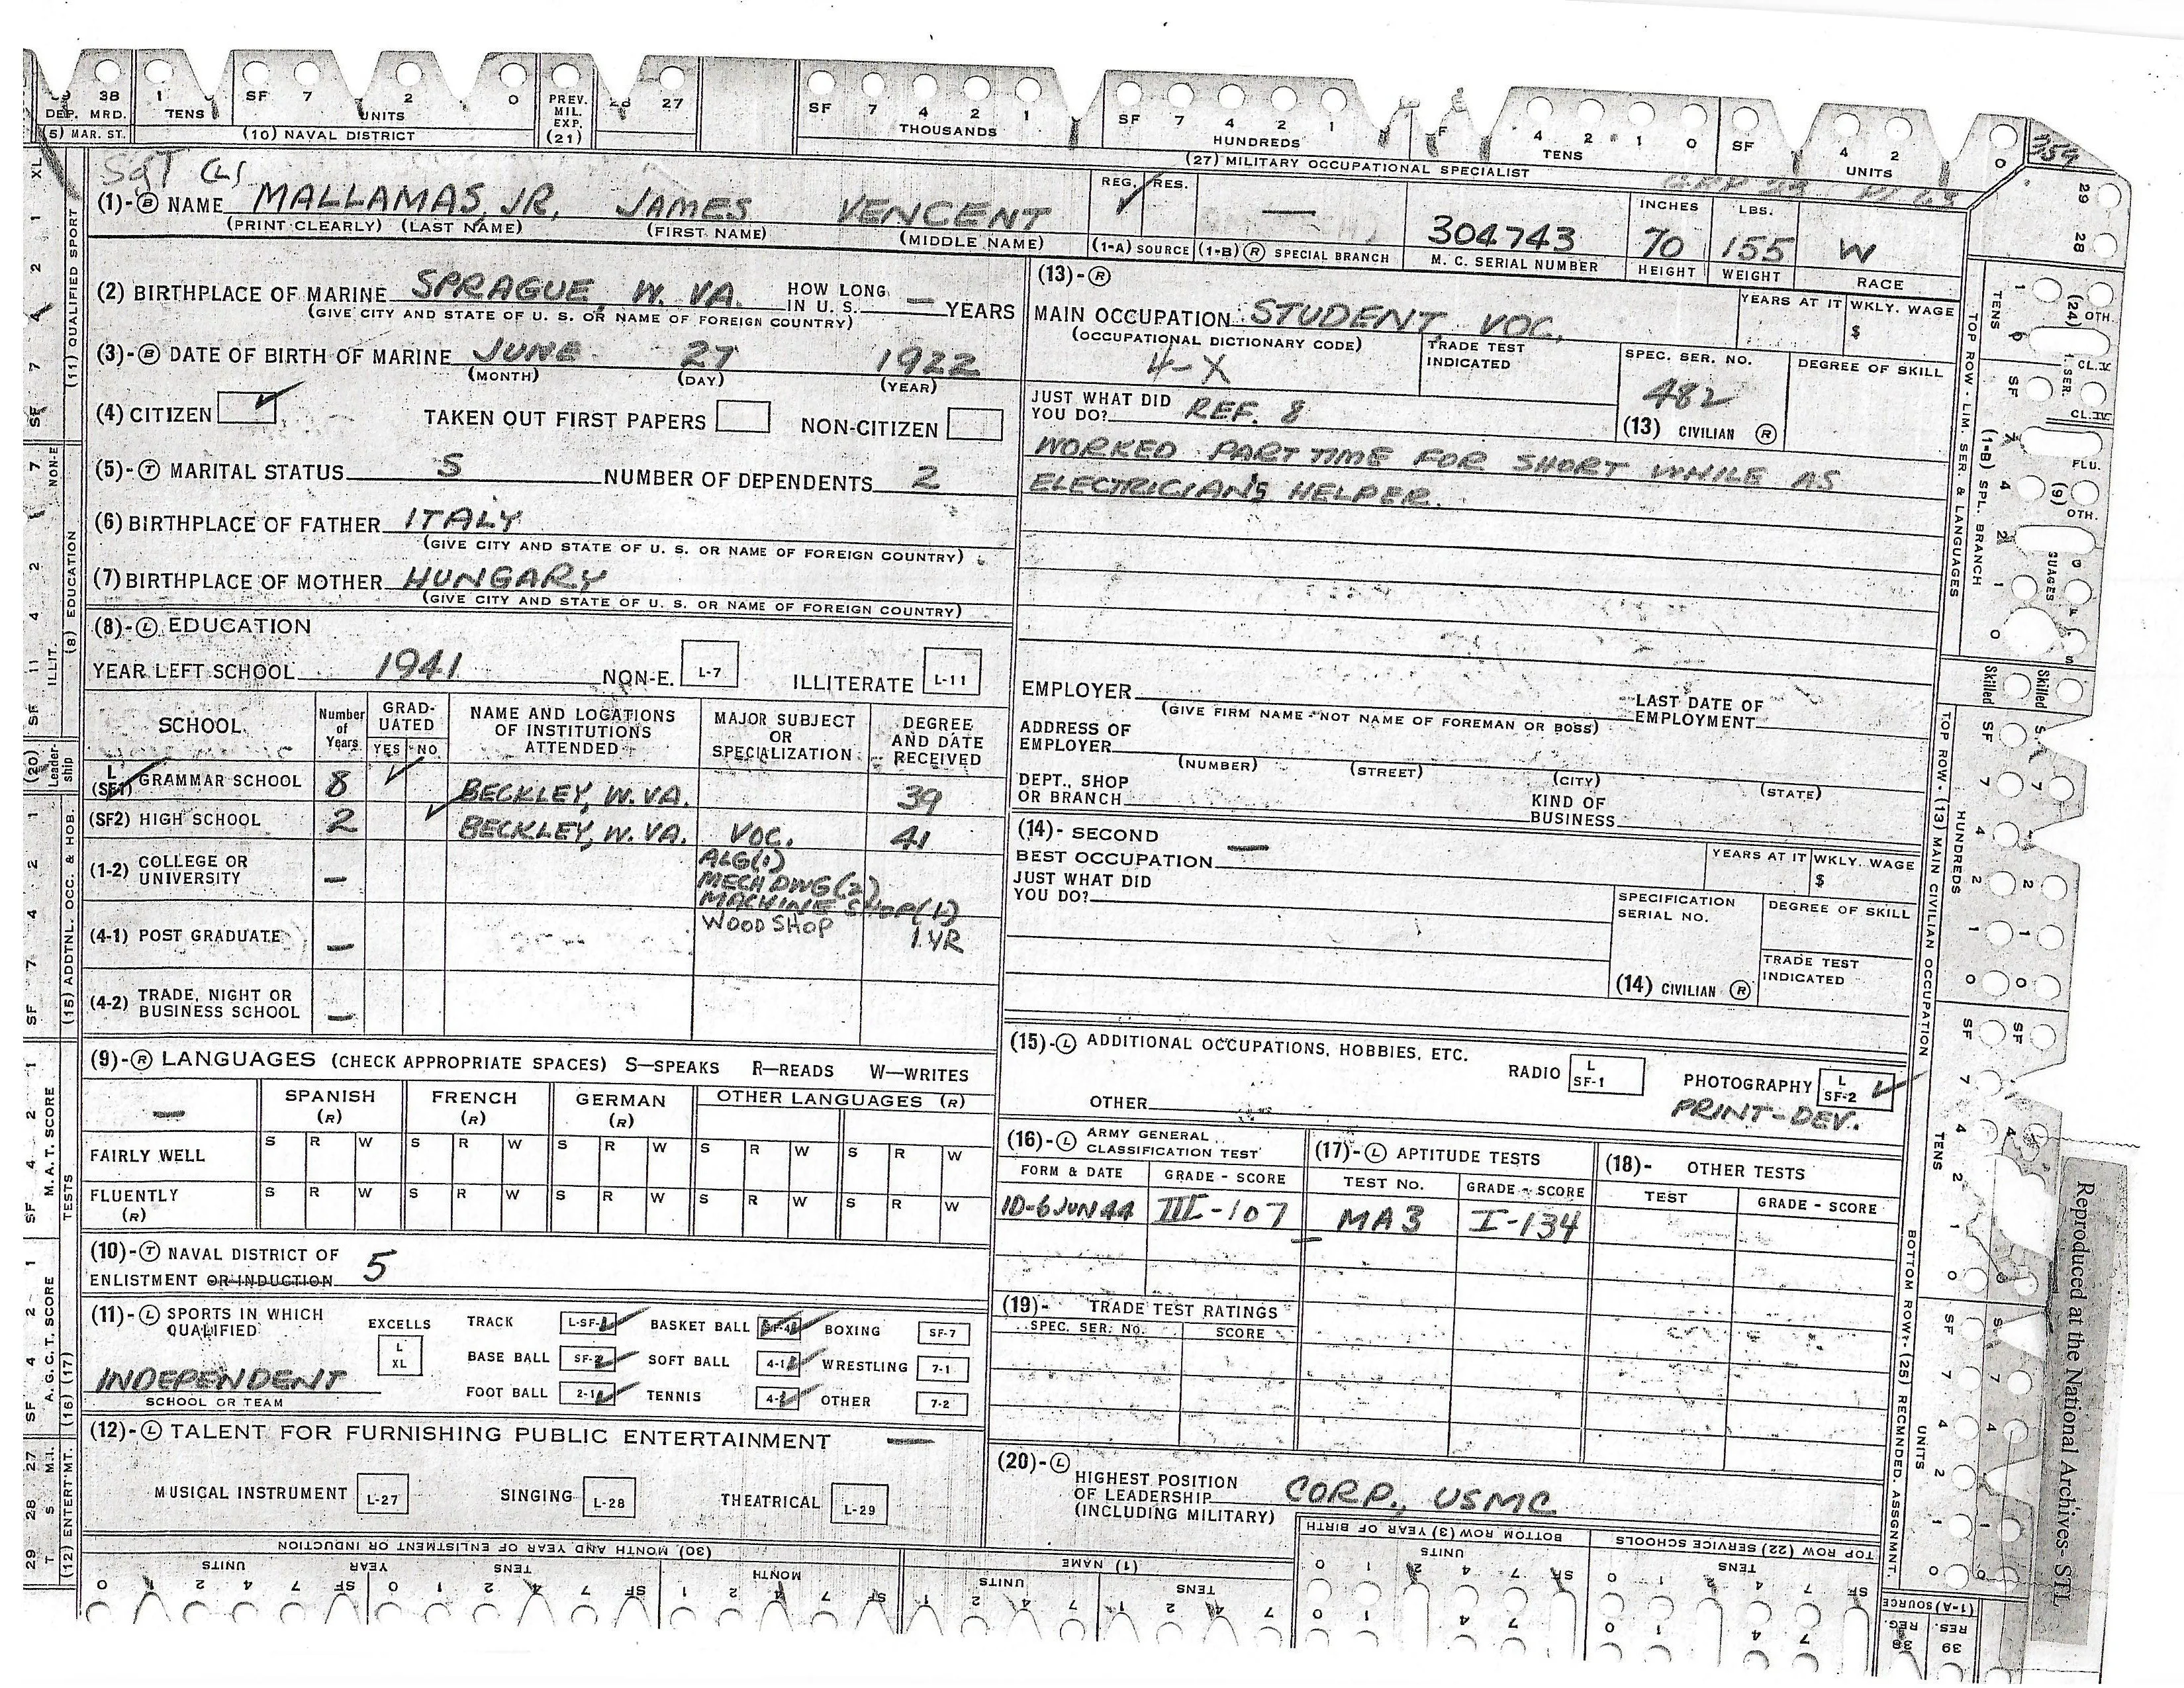 38 1 SF 7 2 0 PREV. MIL. EXP. (21) 27 SF 7 4 2 1 SF 7 4 2 1 4 2 1 0 SF 4 2 0
DEP. MRD. TENS UNITS THOUSANDS HUNDREDS TENS UNITS
(5) MAR. ST. (10) NAVAL DISTRICT (27) MILITARY OCCUPATIONAL SPECIALIST
Sgt (L)
(1)-Ⓑ NAME MALLAMAS, JR, JAMES VENCENT
(PRINT CLEARLY) (LAST NAME) (FIRST NAME) (MIDDLE NAME)
REG. ✓ RES. —
(1-A) SOURCE (1-B) Ⓡ SPECIAL BRANCH
304743
M. C. SERIAL NUMBER
INCHES 70 HEIGHT
LBS. 155 WEIGHT
W RACE
(2) BIRTHPLACE OF MARINE SPRAGUE, W. VA. HOW LONG IN U. S. — YEARS
(GIVE CITY AND STATE OF U. S. OR NAME OF FOREIGN COUNTRY)
(3)-Ⓑ DATE OF BIRTH OF MARINE JUNE 27 1922
(MONTH) (DAY) (YEAR)
(4) CITIZEN ✓ TAKEN OUT FIRST PAPERS NON-CITIZEN
(5)-Ⓣ MARITAL STATUS S NUMBER OF DEPENDENTS 2
(6) BIRTHPLACE OF FATHER ITALY
(GIVE CITY AND STATE OF U. S. OR NAME OF FOREIGN COUNTRY)
(7) BIRTHPLACE OF MOTHER HUNGARY
(GIVE CITY AND STATE OF U. S. OR NAME OF FOREIGN COUNTRY)
(8)-Ⓛ EDUCATION
YEAR LEFT SCHOOL 1941 NON-E. L-7 ILLITERATE L-11
SCHOOL Number of Years GRADUATED YES NO NAME AND LOCATIONS OF INSTITUTIONS ATTENDED MAJOR SUBJECT OR SPECIALIZATION DEGREE AND DATE RECEIVED
L (SF1) GRAMMAR SCHOOL 8 ✓ BECKLEY, W. VA. 39
(SF2) HIGH SCHOOL 2 ✓ BECKLEY, W. VA. VOC. 41
ALG(1)
(1-2) COLLEGE OR UNIVERSITY — MECH DWG(2)
MACHINE SHOP(1)
(4-1) POST GRADUATE — WOOD SHOP 1 YR
(4-2) TRADE, NIGHT OR BUSINESS SCHOOL —
(9)-Ⓡ LANGUAGES (CHECK APPROPRIATE SPACES) S—SPEAKS R—READS W—WRITES
— SPANISH (R) FRENCH (R) GERMAN (R) OTHER LANGUAGES (R)
FAIRLY WELL S R W S R W S R W S R W S R W
FLUENTLY (R) S R W S R W S R W S R W S R W
(10)-Ⓣ NAVAL DISTRICT OF
ENLISTMENT OR INDUCTION 5
(11)-Ⓛ SPORTS IN WHICH QUALIFIED
EXCELLS L XL
INDEPENDENT
SCHOOL OR TEAM
TRACK L-SF-1 ✓ BASKET BALL SF-4 ✓ BOXING SF-7
BASE BALL SF-2 ✓ SOFT BALL 4-1 ✓ WRESTLING 7-1
FOOT BALL 2-1 ✓ TENNIS 4-2 ✓ OTHER 7-2
(12)-Ⓛ TALENT FOR FURNISHING PUBLIC ENTERTAINMENT —
MUSICAL INSTRUMENT L-27 SINGING L-28 THEATRICAL L-29
(13)-Ⓡ
MAIN OCCUPATION STUDENT, VOC. YEARS AT IT WKLY. WAGE $
(OCCUPATIONAL DICTIONARY CODE) 4-X TRADE TEST INDICATED SPEC. SER. NO. 482 DEGREE OF SKILL
(13) CIVILIAN Ⓡ
JUST WHAT DID YOU DO? REF. 8
WORKED PART TIME FOR SHORT WHILE AS
ELECTRICIAN'S HELPER.
EMPLOYER LAST DATE OF EMPLOYMENT
(GIVE FIRM NAME - NOT NAME OF FOREMAN OR BOSS)
ADDRESS OF EMPLOYER
(NUMBER) (STREET) (CITY) (STATE)
DEPT., SHOP OR BRANCH KIND OF BUSINESS
(14)- SECOND BEST OCCUPATION — YEARS AT IT WKLY. WAGE $
JUST WHAT DID YOU DO? SPECIFICATION SERIAL NO. DEGREE OF SKILL
TRADE TEST INDICATED
(14) CIVILIAN Ⓡ
(15)-Ⓛ ADDITIONAL OCCUPATIONS, HOBBIES, ETC.
RADIO L SF-1 PHOTOGRAPHY L SF-2 ✓
OTHER PRINT-DEV.
(16)-Ⓛ ARMY GENERAL CLASSIFICATION TEST (17)-Ⓛ APTITUDE TESTS (18)- OTHER TESTS
FORM & DATE GRADE - SCORE TEST No. GRADE - SCORE TEST GRADE - SCORE
1D-6 JUN 44 III-107 MA3 I-134
(19)- TRADE TEST RATINGS
SPEC. SER. No. SCORE
(20)-Ⓛ
HIGHEST POSITION OF LEADERSHIP (INCLUDING MILITARY) CORP., USMC
(11) QUALIFIED SPORT
(8) EDUCATION
NON-E
ILLIT.
(20) Leadership
(15) ADDTNL. OCC. & HOB.
M. A. T. SCORE
TESTS
A. G. C. T. SCORE
(16) (17)
(12) ENTERT'MT.
TOP ROW - LIM. SER & LANGUAGES
(1-B) SPL. BRANCH
TOP ROW - (13) MAIN CIVILIAN OCCUPATION
BOTTOM ROW - (25) RECMNDED. ASSGNMENT.
Skilled
HUNDREDS
TENS
UNITS
(30) MONTH AND YEAR OF ENLISTMENT OR INDUCTION
UNITS YEAR TENS MONTH
(1) NAME
UNITS TENS
BOTTOM ROW (3) YEAR OF BIRTH
UNITS
TOP ROW (22) SERVICE SCHOOLS
TENS
(1-A) SOURCE
REG. RES.
39
Reproduced at the National Archives- STL